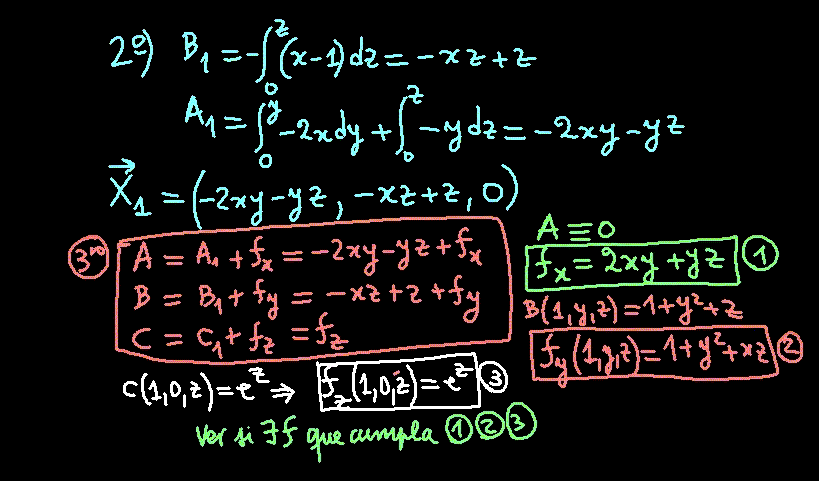 2º) B₁ = -∫₀ᶻ (x-1)dz = -xz+z
A₁ = ∫₀ʸ -2xdy + ∫₀ᶻ -ydz = -2xy-yz
X⃗₁ = (-2xy-yz, -xz+z, 0)
3ʳᵒ A = A₁ + fₓ = -2xy-yz+fₓ
B = B₁ + f_y = -xz+z+f_y
C = C₁ + f_z = f_z
A ≡ 0
fₓ = 2xy+yz ①
B(1,y,z) = 1+y²+z
f_y(1,y,z) = 1+y²+xz ②
C(1,0,z) = eᶻ ⇒ f_z(1,0,z) = eᶻ ③
Ver si ∃ f que cumpla ① ② ③